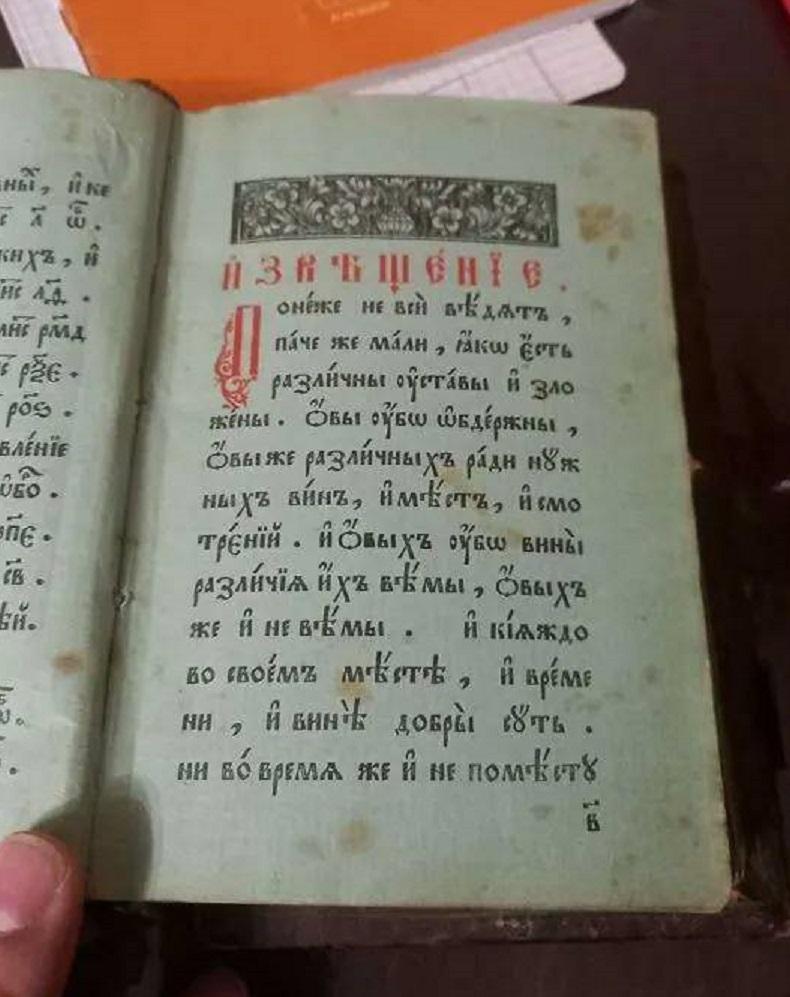 ны҃й, и҆ ке
л҃ ѿ.
кихъ, и҆
рм҃д
ро҃ѕ.
вле́нїе
св҃.
И҆ЗВѢЩЕ́НЇЕ.
Поне́же не всѝ вѣ́дѧтъ,
па́че же ма́ли, ꙗ҆́кѡ є҆́сть
разли́чны ᲂу҆ста́вы и҆ зло
же́ны. Ѻ҆́вы ᲂу҆́бѡ ѡ҆бде́ржны,
Ѻ҆́вы же разли́чныхъ ра́ди нꙋж
ныхъ ви́нъ, и҆ мѣ́стъ, и҆ смо
тре́нїй. и҆ Ѻ҆́выхъ ᲂу҆́бѡ вины̀
разли́чїѧ и҆́хъ вѣ́мы, Ѻ҆́выхъ
же и҆ не вѣ́мы. и҆ кі́ѧждо
во свое́мъ мѣ́стѣ, и҆ вре́ме
ни, и҆ винѣ̀ добры̀ сꙋ́ть.
ни во́ времѧ же и҆ не помѣ́стꙋ
в҃